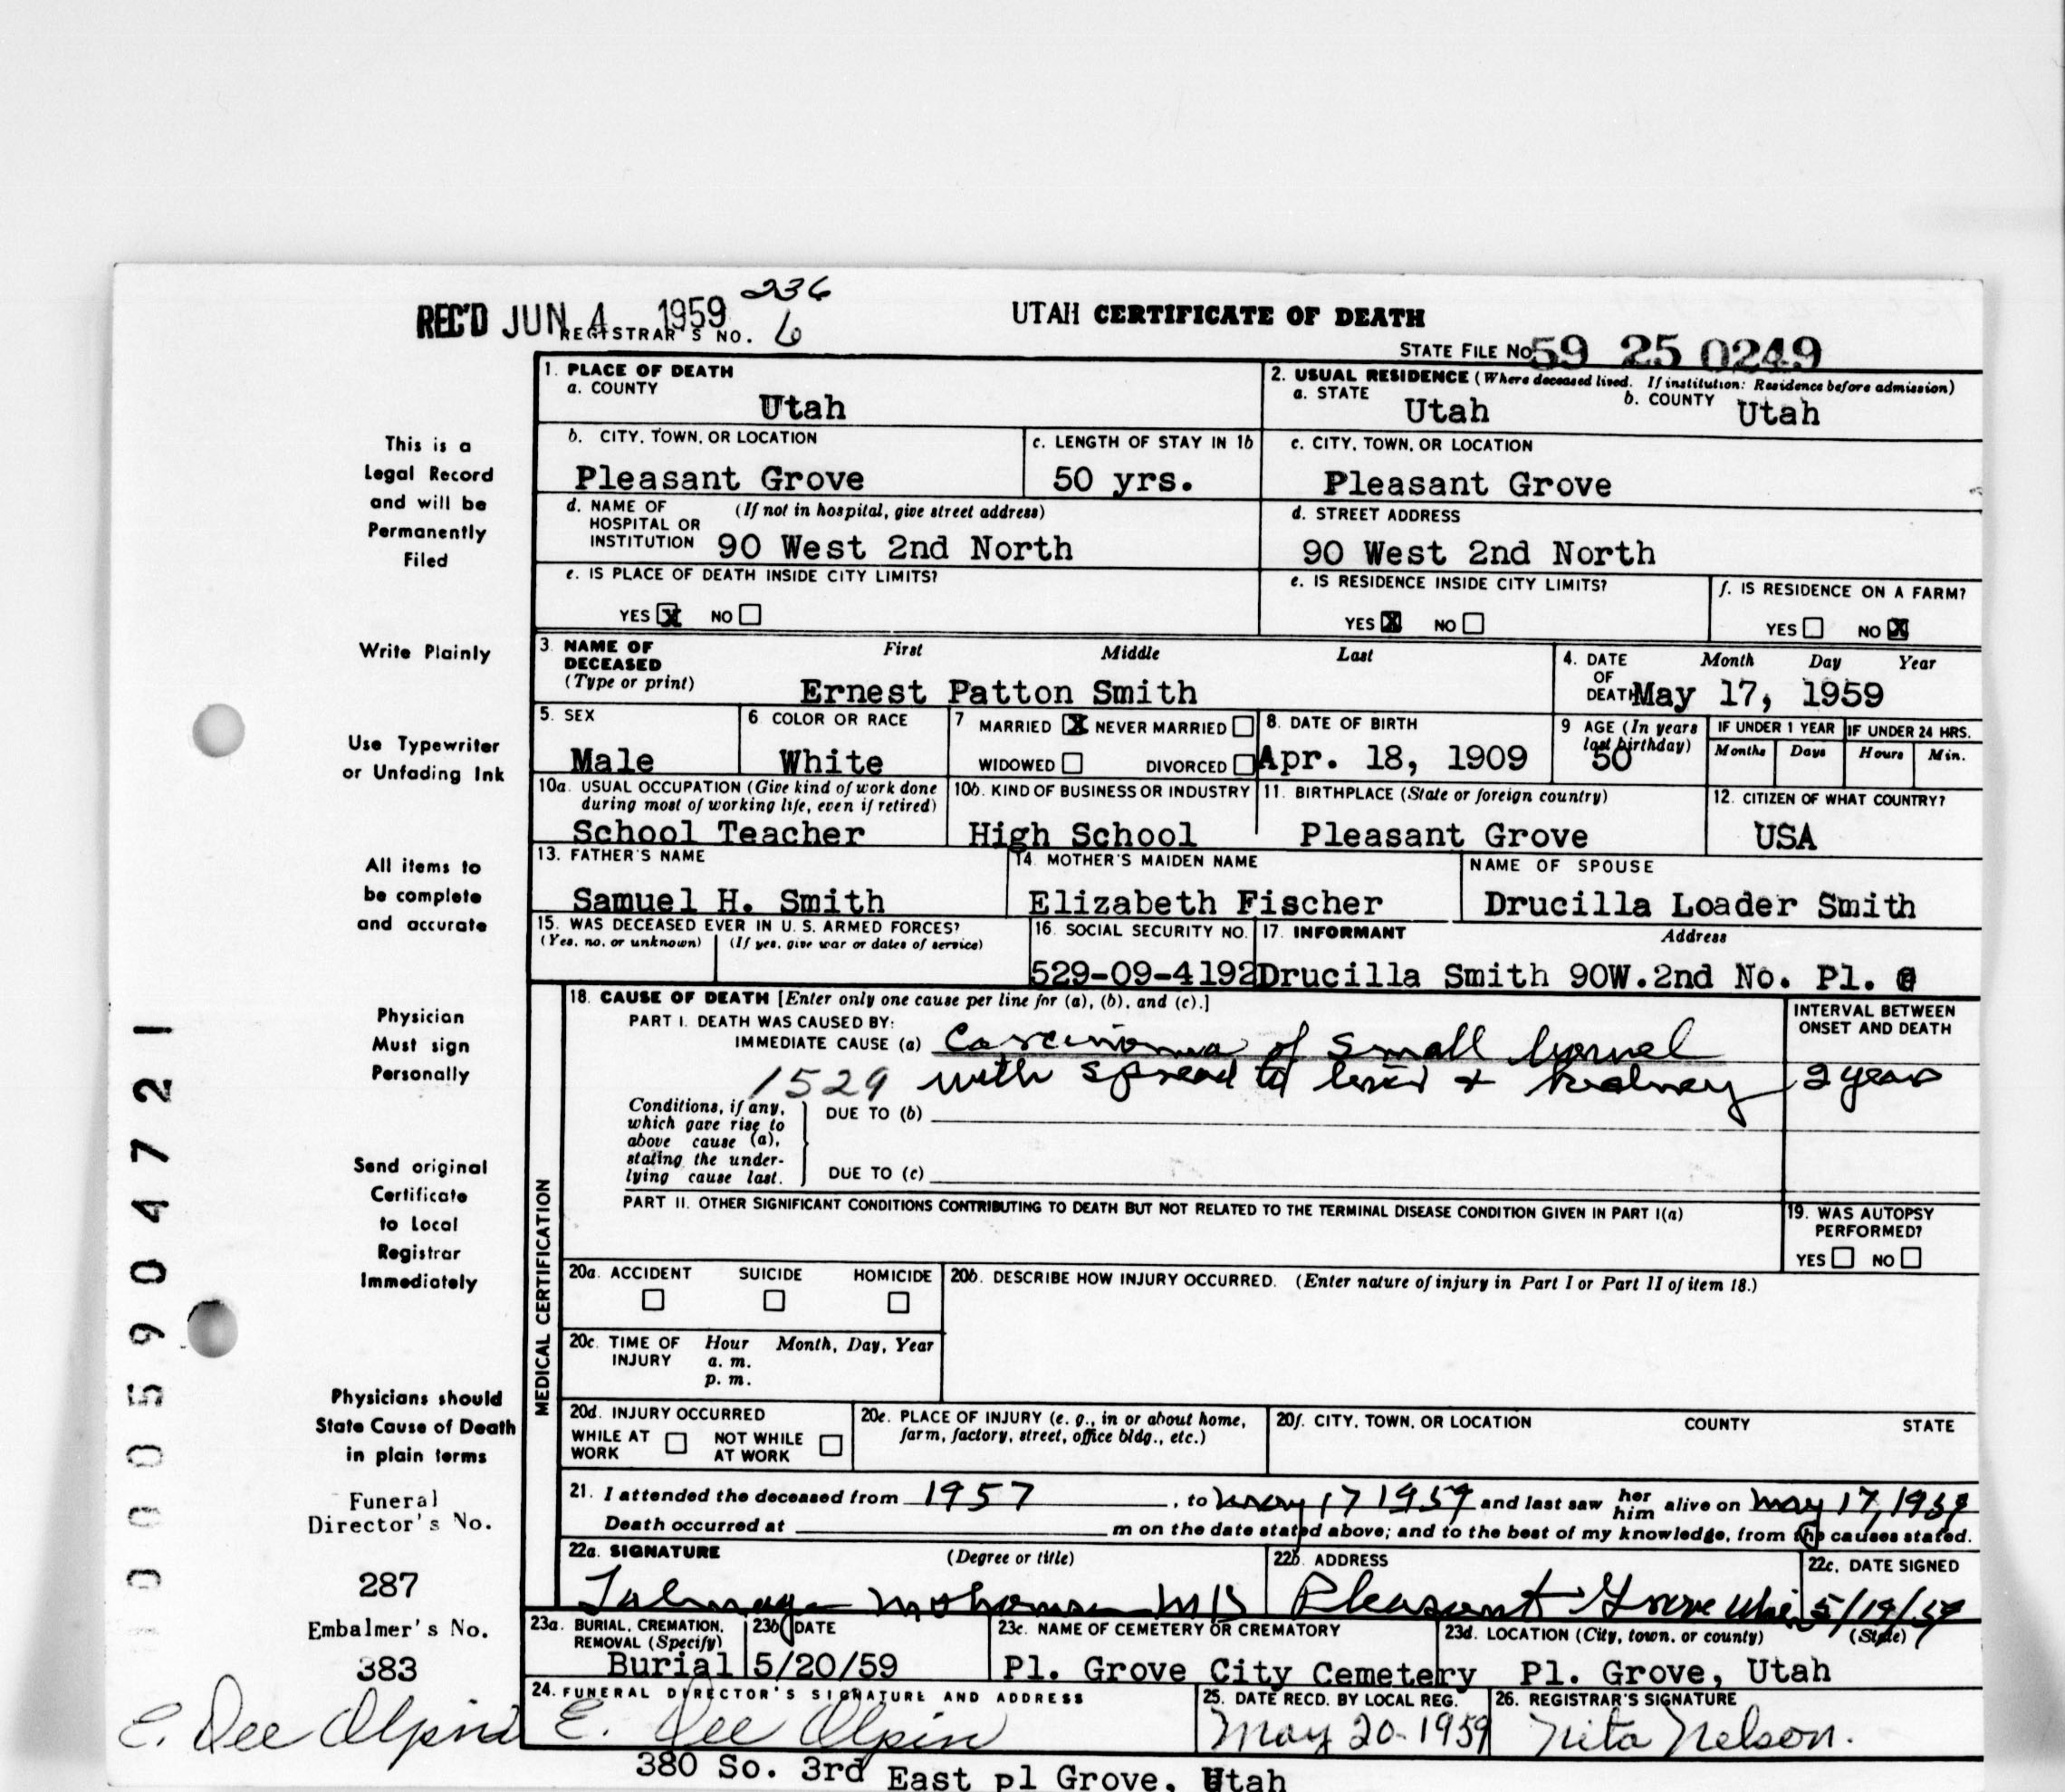 236
REC'D JUN 4 1959 REGISTRAR'S NO. 6
UTAH CERTIFICATE OF DEATH
STATE FILE NO 59 25 0249
1. PLACE OF DEATH
a. COUNTY
Utah
2. USUAL RESIDENCE (Where deceased lived. If institution: Residence before admission)
a. STATE Utah b. COUNTY Utah
This is a
Legal Record
and will be
Permanently
Filed
b. CITY, TOWN, OR LOCATION
Pleasant Grove
c. LENGTH OF STAY IN 1b
50 yrs.
c. CITY, TOWN, OR LOCATION
Pleasant Grove
d. NAME OF HOSPITAL OR INSTITUTION (If not in hospital, give street address)
90 West 2nd North
d. STREET ADDRESS
90 West 2nd North
e. IS PLACE OF DEATH INSIDE CITY LIMITS?
YES X NO
e. IS RESIDENCE INSIDE CITY LIMITS?
YES X NO
f. IS RESIDENCE ON A FARM?
YES NO X
Write Plainly
3. NAME OF DECEASED (Type or print)
First Middle Last
Ernest Patton Smith
4. DATE OF DEATH Month Day Year
May 17, 1959
Use Typewriter
or Unfading Ink
5. SEX
Male
6 COLOR OR RACE
White
7 MARRIED X NEVER MARRIED
WIDOWED DIVORCED
8. DATE OF BIRTH
Apr. 18, 1909
9 AGE (In years last birthday)
50
IF UNDER 1 YEAR IF UNDER 24 HRS.
Months Days Hours Min.
10a. USUAL OCCUPATION (Give kind of work done during most of working life, even if retired)
School Teacher
10b. KIND OF BUSINESS OR INDUSTRY
High School
11. BIRTHPLACE (State or foreign country)
Pleasant Grove
12. CITIZEN OF WHAT COUNTRY?
USA
All items to
be complete
and accurate
13. FATHER'S NAME
Samuel H. Smith
14. MOTHER'S MAIDEN NAME
Elizabeth Fischer
NAME OF SPOUSE
Drucilla Loader Smith
15. WAS DECEASED EVER IN U. S. ARMED FORCES?
(Yes, no, or unknown) (If yes, give war or dates of service)
16. SOCIAL SECURITY NO.
529-09-4192
17. INFORMANT Address
Drucilla Smith 90W.2nd No. Pl. G
Physician
Must sign
Personally
MEDICAL CERTIFICATION
18. CAUSE OF DEATH [Enter only one cause per line for (a), (b), and (c).]
PART I. DEATH WAS CAUSED BY:
IMMEDIATE CAUSE (a) Carcinoma of small bowel
1529 with spread to liver + kidney
INTERVAL BETWEEN ONSET AND DEATH
2 years
Conditions, if any, which gave rise to above cause (a), stating the underlying cause last.
DUE TO (b)
DUE TO (c)
Send original
Certificate
to Local
Registrar
Immediately
PART II. OTHER SIGNIFICANT CONDITIONS CONTRIBUTING TO DEATH BUT NOT RELATED TO THE TERMINAL DISEASE CONDITION GIVEN IN PART I(a)
19. WAS AUTOPSY PERFORMED?
YES NO
20a. ACCIDENT SUICIDE HOMICIDE
20b. DESCRIBE HOW INJURY OCCURRED. (Enter nature of injury in Part I or Part II of item 18.)
20c. TIME OF INJURY Hour Month, Day, Year
a. m.
p. m.
Physicians should
State Cause of Death
in plain terms
20d. INJURY OCCURRED
WHILE AT WORK NOT WHILE AT WORK
20e. PLACE OF INJURY (e. g., in or about home, farm, factory, street, office bldg., etc.)
20f. CITY, TOWN, OR LOCATION COUNTY STATE
21. I attended the deceased from 1957, to May 17 1959 and last saw her him alive on May 17, 1959
Death occurred at m on the date stated above; and to the best of my knowledge, from the causes stated.
Funeral
Director's No.
287
Embalmer's No.
383
E. Dee Alpin
22a. SIGNATURE (Degree or title)
Talmage MD
22b. ADDRESS
Pleasant Grove
22c. DATE SIGNED
5/19/59
23a. BURIAL, CREMATION, REMOVAL (Specify)
Burial
23b. DATE
5/20/59
23c. NAME OF CEMETERY OR CREMATORY
Pl. Grove City Cemetery
23d. LOCATION (City, town, or county) (State)
Pl. Grove, Utah
24. FUNERAL DIRECTOR'S SIGNATURE AND ADDRESS
E. Dee Alpin
380 So. 3rd East pl Grove, Utah
25. DATE RECD. BY LOCAL REG.
May 20-1959
26. REGISTRAR'S SIGNATURE
Nita Nelson.
0005904721